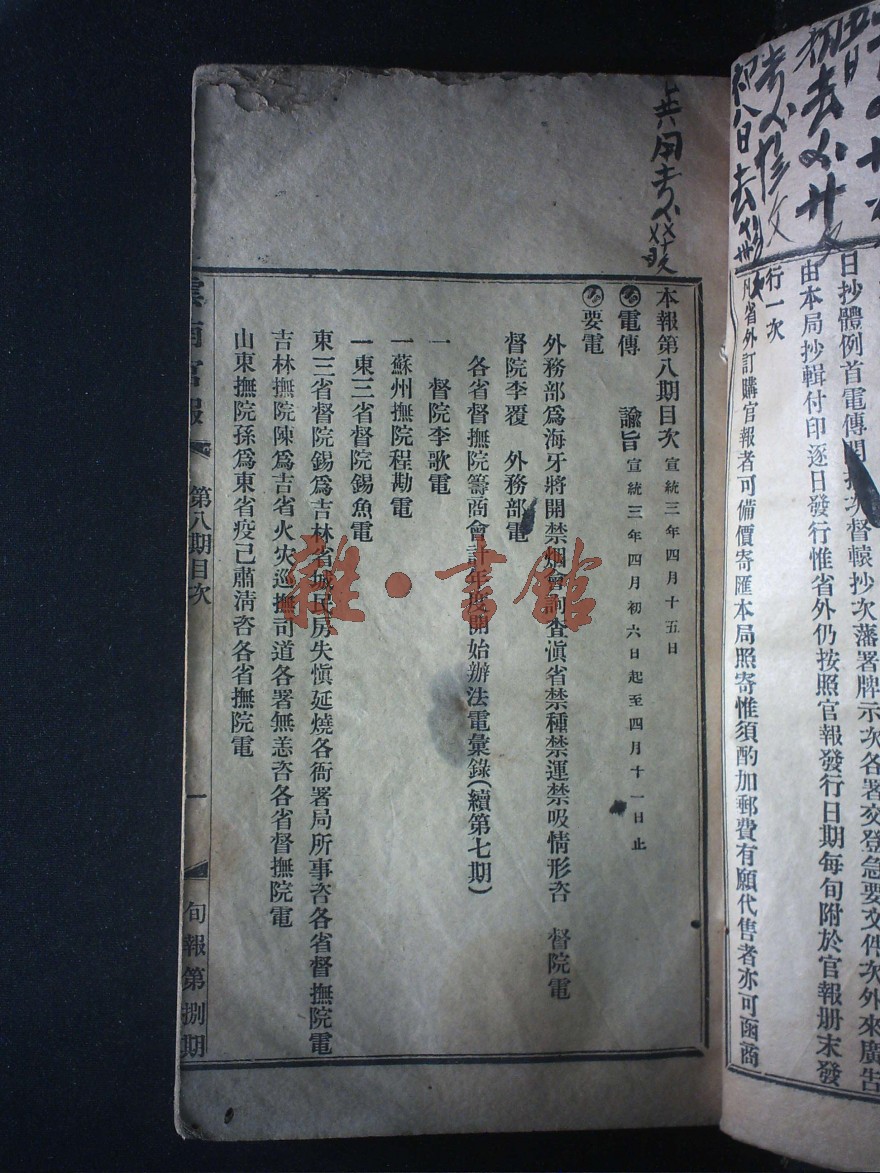 日抄體例首電傳次督轅抄次藩署牌示次各署交登急要文件次外來廣告
由本局抄輯付印逐日發行惟省外仍按照官報發行日期每旬附於官報册末發
行一次
凡省外訂購官報者可備價寄匯本局照寄惟須酌加郵費有願代售者亦可函商
本報第八期目次 宣統三年四月十五日
電傳 諭旨 宣統三年四月初六日起至四月十一日止
要電
外務部爲海牙將開禁烟會詢查滇省禁種禁運禁吸情形咨 督院電
督院李覆 外務部電
各省督撫院籌商會計年度開始辦法電彙錄(續第七期)
一 督院李歌電
一蘇州撫院程勘電
一東三省督院錫魚電
東三省督院錫爲吉林省城民房失愼延燒各衙署局所事咨各省督撫院電
吉林撫院陳爲吉省火灾巡撫司道各署無恙咨各省督撫院電
山東撫院孫爲東省疫已肅清咨各省撫院電
雲南官報 第八期目次 一 旬報第捌期
雜·書館